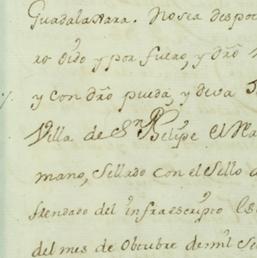 Guadalaxara. No sea despo
ro oido y por fuero, y dro
y con dro pueda, y deva
Villa de Sn. Phelipe el Rl
mano, Sellado con el Sello d
frendado del infraescripto
del mes de Octubre de mil Se